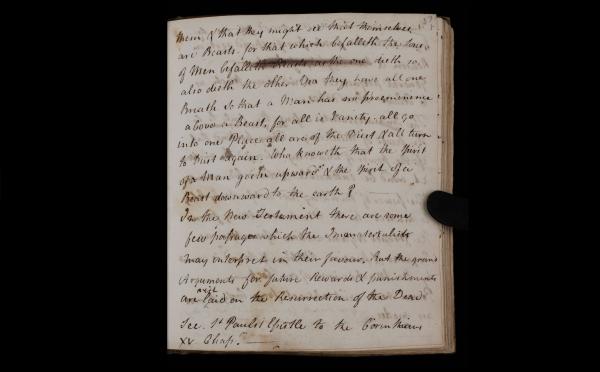 them, & that they might see that themselves
are Beasts. for that which befalleth the sons
of Men befalleth Beasts, as the one dieth so
also dieth the other Yea they have all one
Breath so that a Man has no preeminence
above a Beast, for all is Vanity. all go
into one Place all are of the Dust & all turn
to Dust again. Who knoweth that the spirit
of a Man goeth upward & the spirit of a
Beast downward to the earth?
In the New Testament there are some
few passages which the Immaterialists
may interpret in their favour. But the grand
Arguments for future Rewards & punishments
are laid on the Resurrection of the Dead
See St Paul's Epistle to the Corinthians
XV Chap.